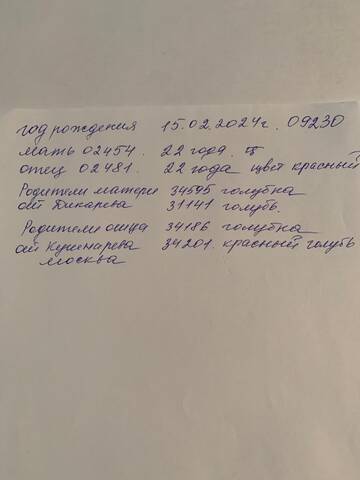 год рождения 15.02.2024г. 09230
мать 02454. 22 года.
отец 02481. 22 года цвет красный
Родители матери 34595 голубка
от Дикарева 31141 голубь.
Родители отца 34186 голубка
от Кушнарева 34201. красный голубь
Москва